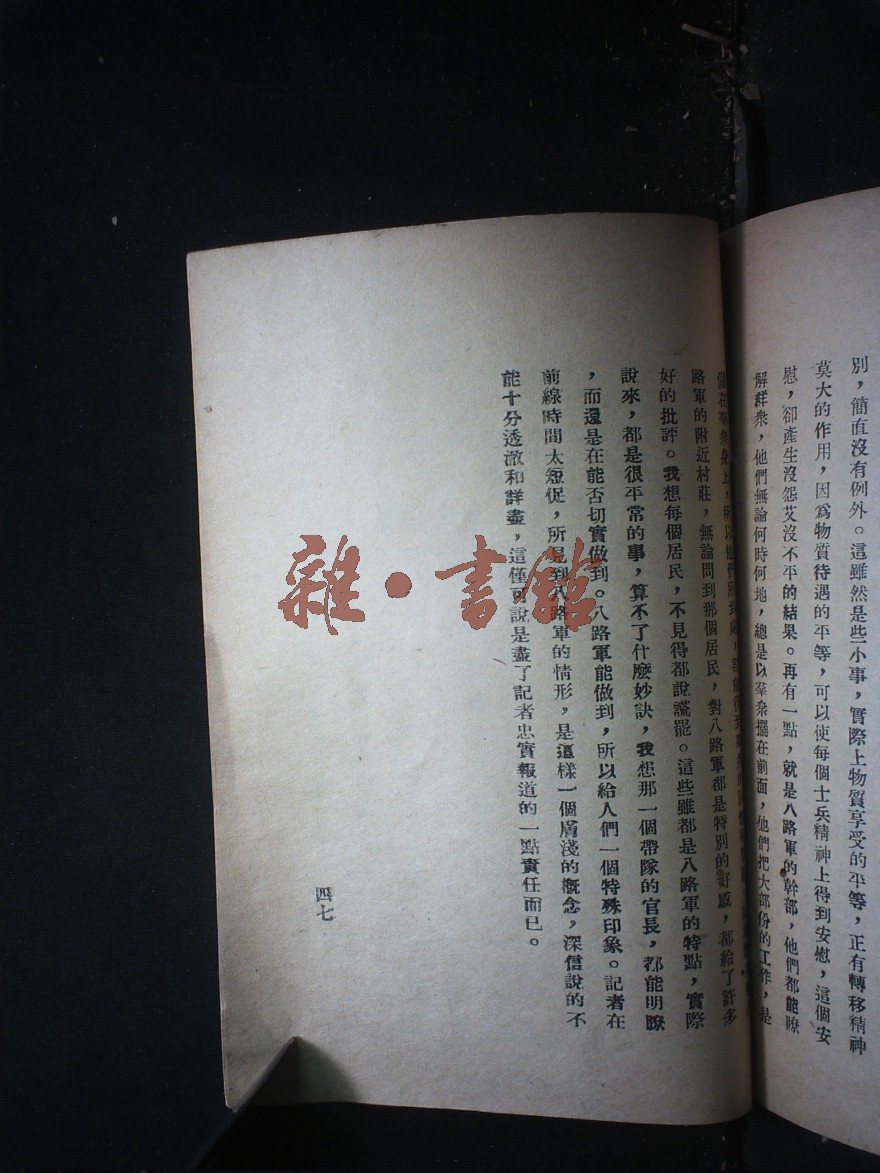 別，簡直沒有例外。這雖然是些小事，實際上物質享受的平等，正有轉移精神
莫大的作用，因爲物質待遇的平等，可以使每個士兵精神上得到安慰，這個安
慰，卻產生沒怨艾沒不平的結果。再有一點，就是八路軍的幹部，他們都能瞭
解群衆，他們無論何時何地，總是以羣衆擺在前面，他們把大部份的工作，是
在羣衆身上，所以他們所到處，都能得到
路軍的附近村莊，無論問到那個居民，對八路軍都是特別的好感，都給了許多
好的批評。我想每個居民，不見得都說謊罷。這些雖都是八路軍的特點，實際
說來，都是很平常的事，算不了什麼妙訣，我想那一個帶隊的官長，都能明瞭
，而還是在能否切實做到。八路軍能做到，所以給人們一個特殊印象。記者在
前線時間太短促，所見到八路軍的情形，是這樣一個膚淺的概念，深信說的不
能十分透澈和詳盡，這僅可說是盡了記者忠實報道的一點責任而已。
四七
雜·書館